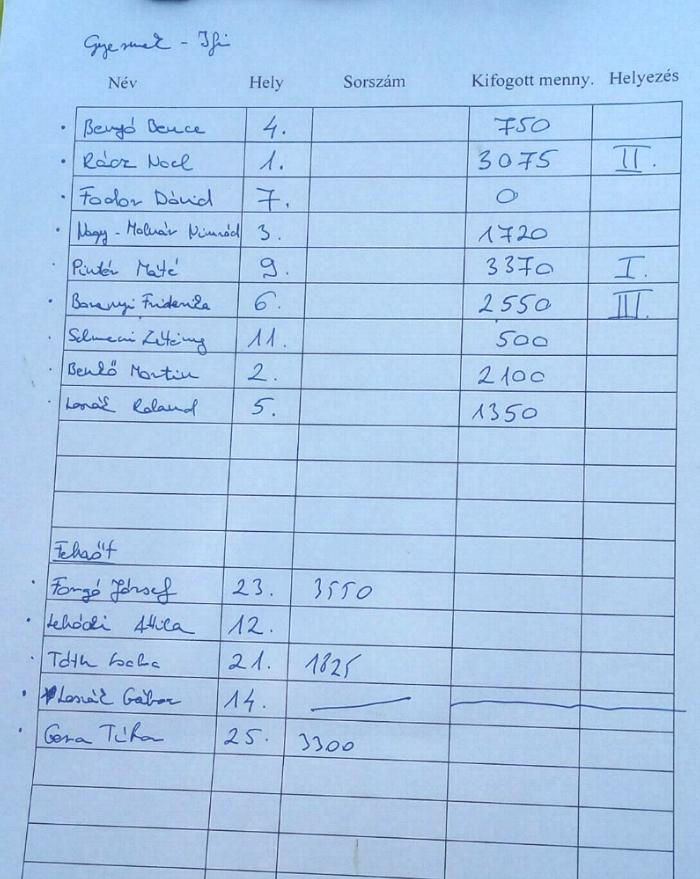 Gyermek - Ifi
Név Hely Sorszám Kifogott menny. Helyezés
Benyó Bence 4. 750
Rácz Noel 1. 3075 II.
Fodor Dávid 7. 0
Nagy-Molnár Nimród 3. 1720
Pintér Máté 9. 3370 I.
Baranyi Friderika 6. 2550 III.
11. 500
Benkő Martin 2. 2100
Roland 5. 1350
Felnőtt
Forgó József 23. 3550
Attila 12.
Tóth 21. 1825
Gábor 14.
Gera 25. 3300